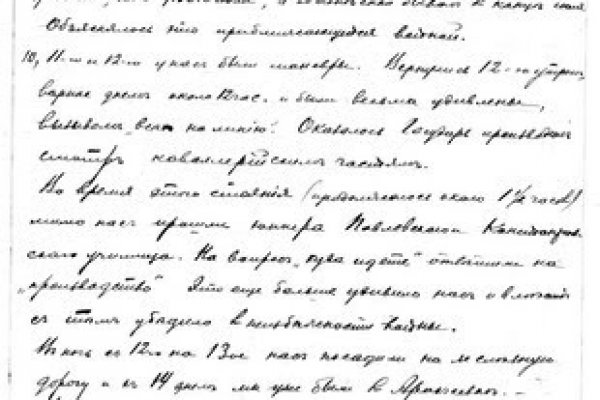 Объяснялось это приближающейся войной.
10, 11-го и 12-го у насъ были маневры. Вернулись 12-го утромъ,
вернее днемъ около 12 час. и были весьма удивлены,
вызовомъ "всѣ на линію". Оказалось Государь производилъ
смотръ кавалерійскимъ частямъ.
Во время этого стоянія (продолжалось около 1 1/2 часовъ)
мимо насъ прошли юнкера Павловскаго
скаго училища. На вопросъ "куда идете" отвѣтили на
"производство" Это еще больше удивило насъ и
съ этимъ убѣдило в неизбѣжности войны.
Въ ночь съ 12го на 13ое насъ посадили на желѣзную
дорогу и къ 14 днемъ мы уже были в